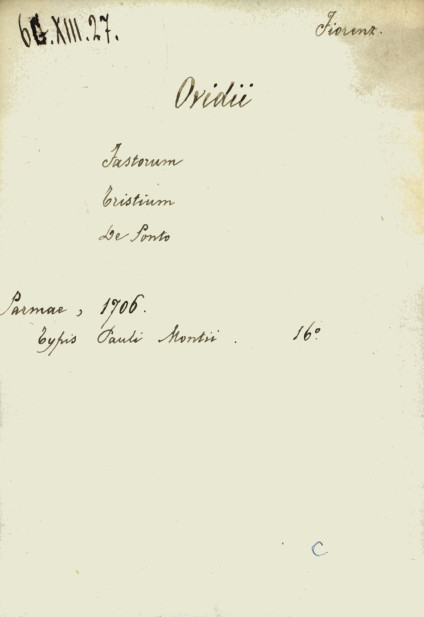 6G.XIII.27.
Fiorenz.
Ovidii
Fastorum
Tristium
De Ponto
Parmae, 1706.
Typis Pauli Montii. 16°
C